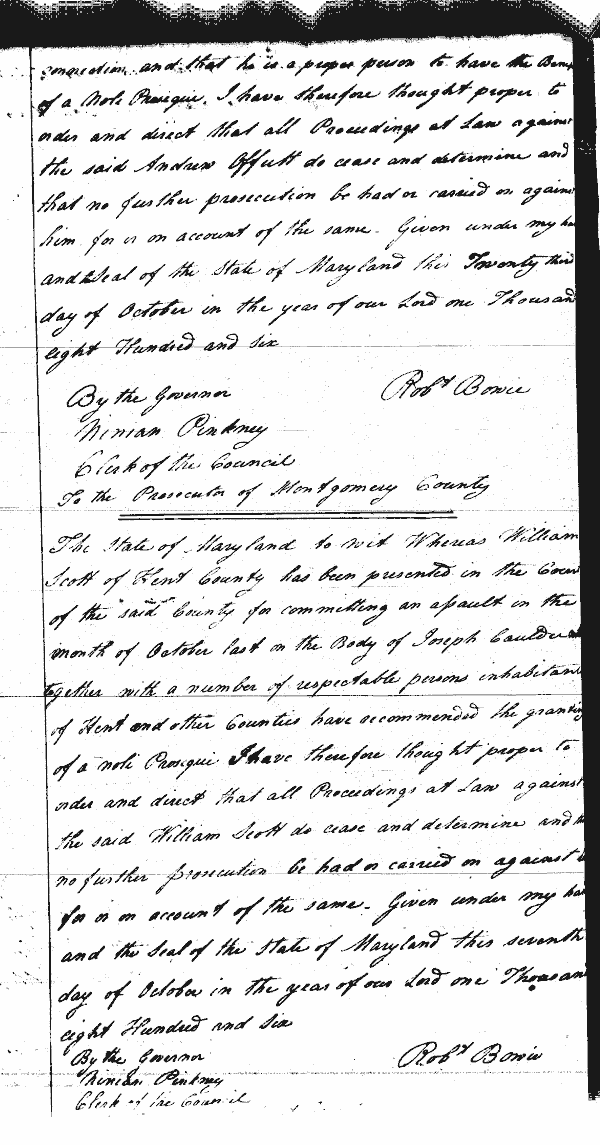 connection and that he is a proper person to have the Bene
of a Nole Prosequi. I have therefore thought proper to
order and direct that all Proceedings at Law agains
the said Andrew Offutt do cease and determine and
that no further prosecution be had or carried on agains
him for or on account of the same. Given under my ha
and Seal of the State of Maryland this Twenty third
day of October in the year of our Lord one Thousan
eight Hundred and six
By the Governor Robt Bowie
Ninian Pinkney
Clerk of the Council
To the Prosecutor of Montgomery County
The State of Maryland to wit Whereas William
Scott of Kent County has been presented in the Cour
of the "said" County for committing an assault in the
month of October last on the Body of Joseph
together with a number of respectable persons inhabitan
of Kent and other Counties have recommended the granting
of a noli Prosequi I have therefore thought proper to
order and direct that all Proceedings at Law against
the said William Scott do cease and determine and
no further prosecution be had or carried on against
for or on account of the same. Given under my ha
and the Seal of the State of Maryland this seventh
day of October in the year of our Lord one Thousan
eight Hundred and six
By the Governor Robt Bowie
Ninian Pinkney
Clerk of the Council